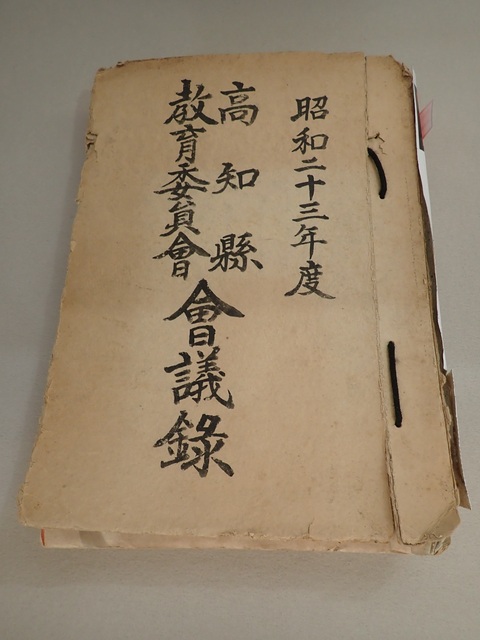 昭和二十三年度
高知縣
教育委員會
會議錄